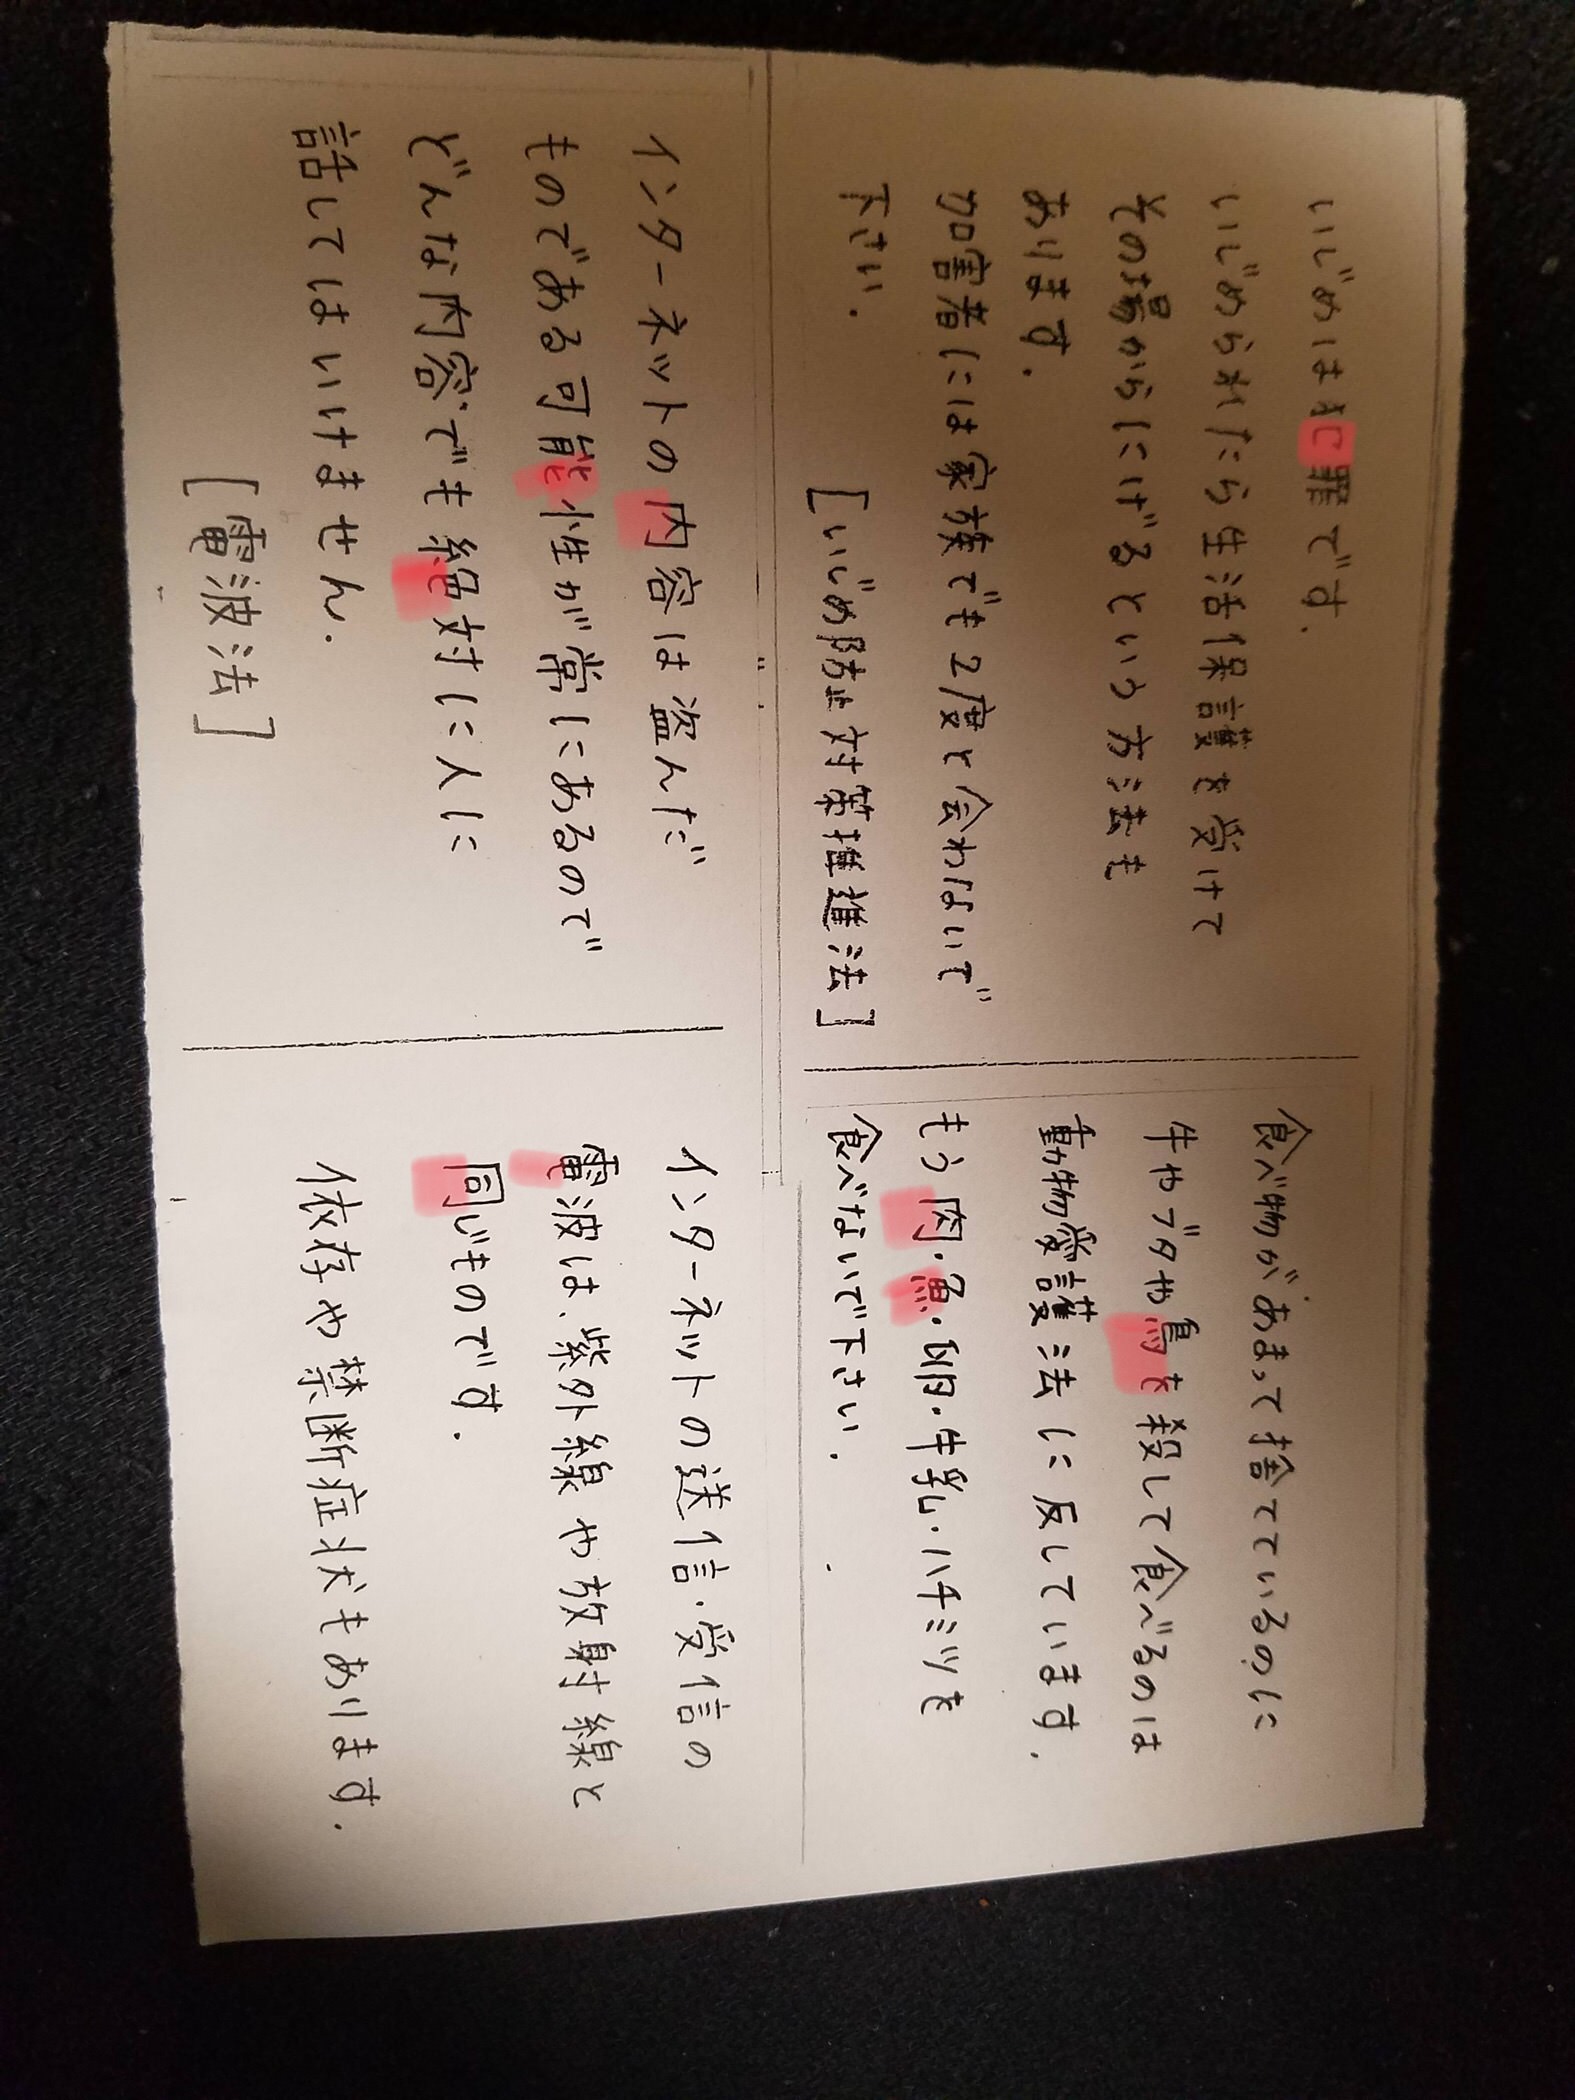 いじめは犯罪です.
いじめられたら生活保護を受けて
その場からにげるという方法も
あります.
加害者には家族でも2度と会わないで
下さい.
[いじめ防止対策推進法]
食べ物があまって捨てているのに
牛やブタや鳥を殺して食べるのは
動物愛護法に反しています.
もう肉・魚・卵・牛乳・ハチミツを
食べないで下さい.
インターネットの内容は盗んだ
ものである可能性が常にあるので
どんな内容でも絶対に人に
話してはいけません.
[電波法]
インターネットの送信・受信の
電波は、紫外線や放射線と
同じものです.
依存や禁断症状もあります.